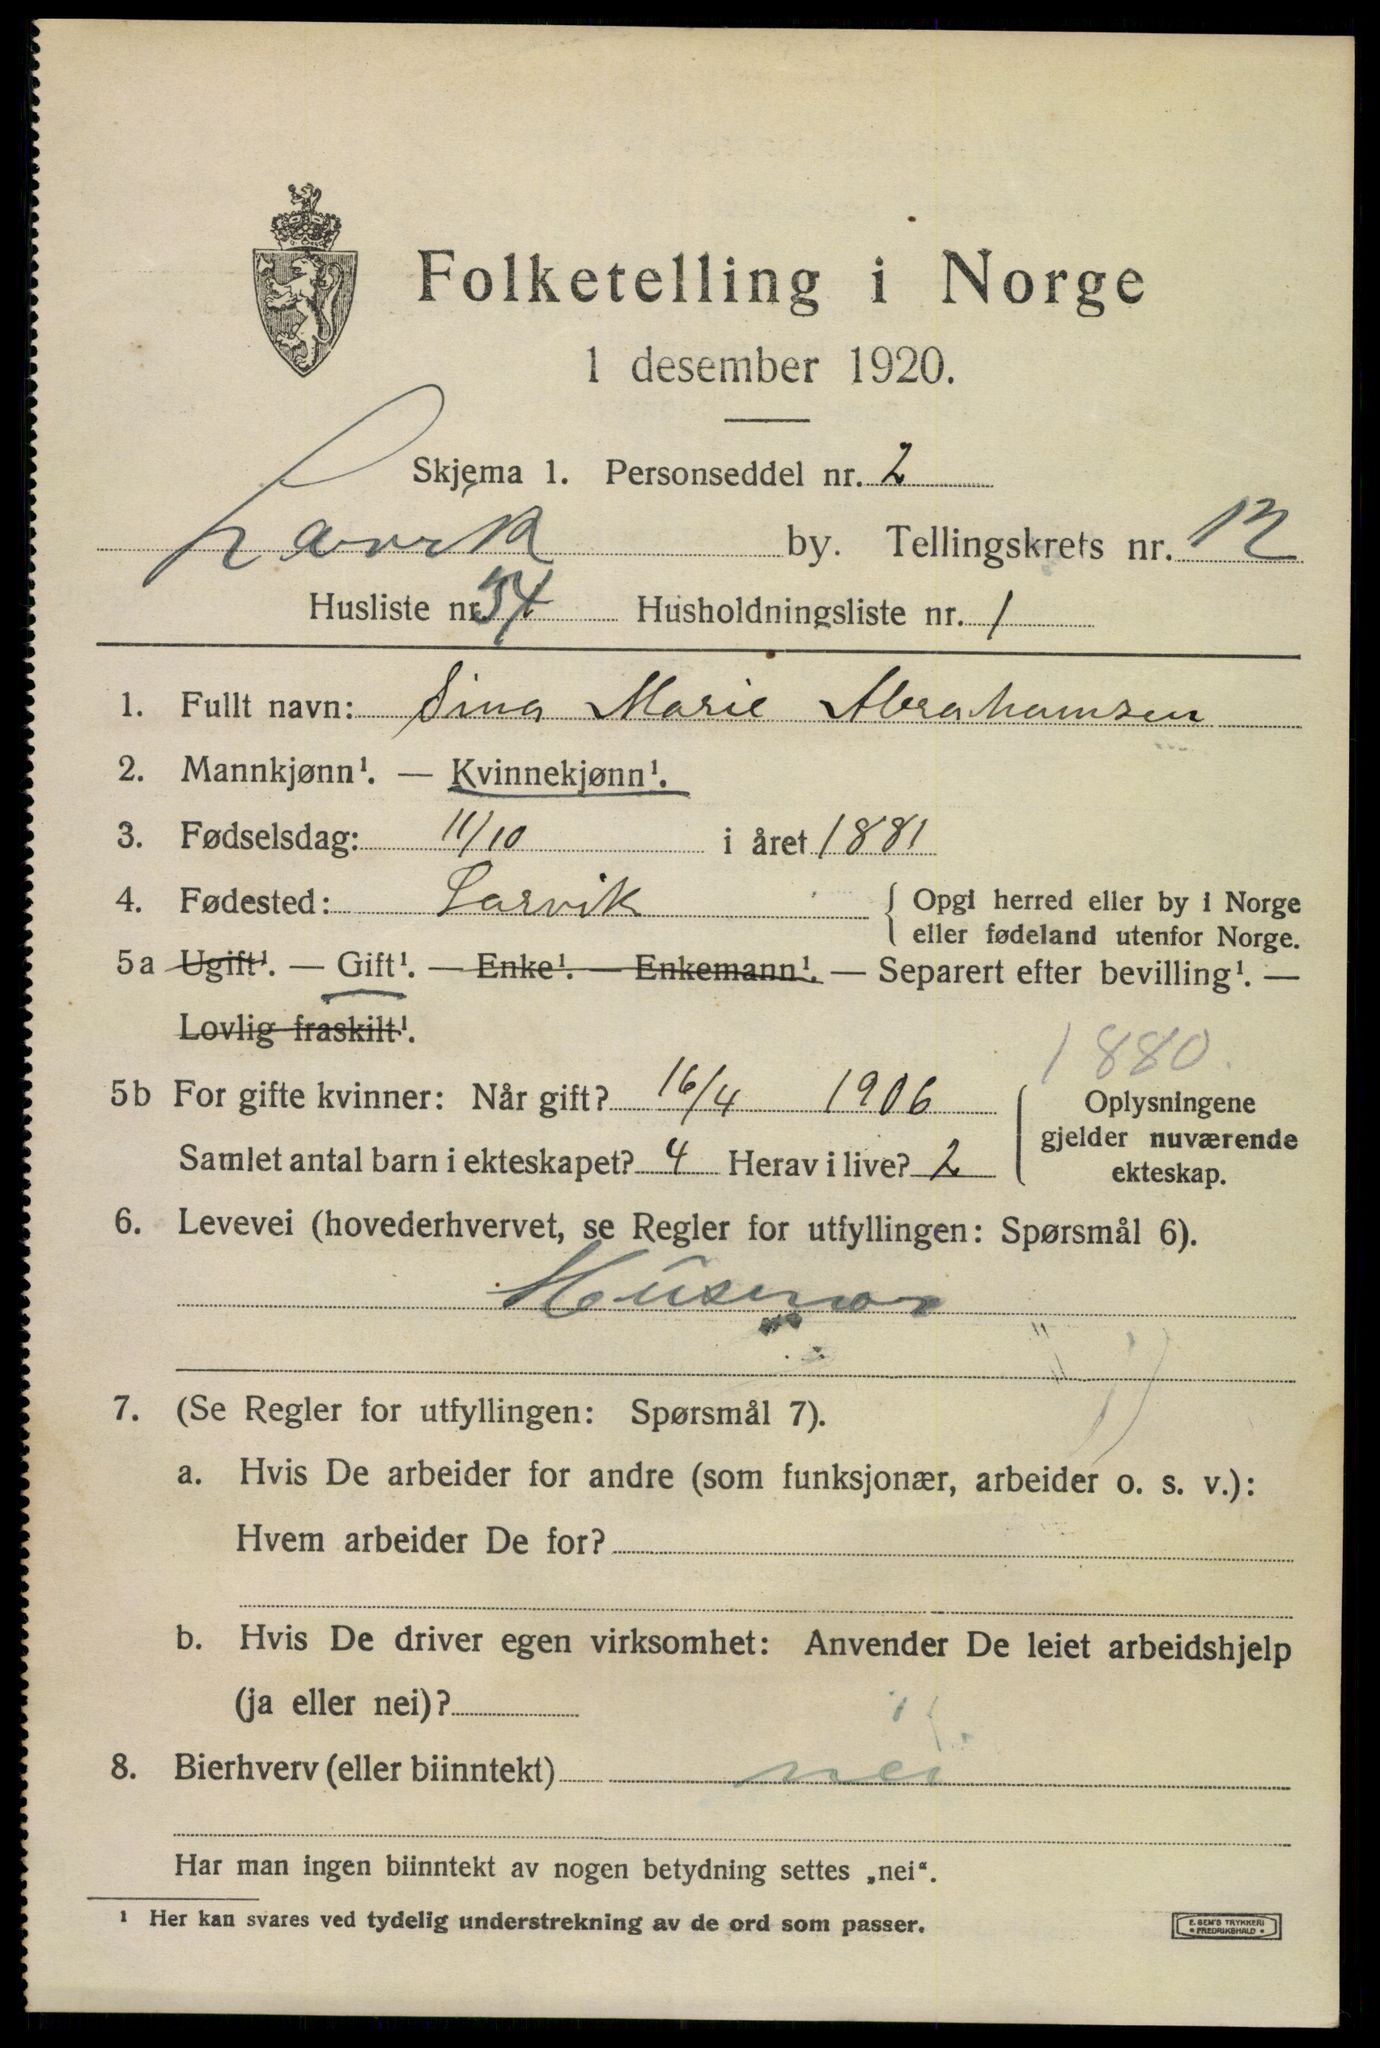 Folketelling i Norge
1 desember 1920.
Skjema 1. Personseddel nr. 2
Larvik by. Tellingskrets nr. 12
Husliste nr. 34 Husholdningsliste nr. 1
1. Fullt navn: Sina Marie Abrahamsen
2. Mannkjønn¹. — Kvinnekjønn¹.
3. Fødselsdag: 11/10 i året 1881
4. Fødested: Larvik { Opgi herred eller by i Norge
eller fødeland utenfor Norge.
5a Ugift¹. — Gift¹. — Enke¹. — Enkemann¹. — Separert efter bevilling¹. —
Lovlig fraskilt¹.
1880.
5b For gifte kvinner: Når gift? 16/4 1906 Oplysningene
gjelder nuværende
Samlet antal barn i ekteskapet? 4 Herav i live? 2 ekteskap.
6. Levevei (hovederhvervet, se Regler for utfyllingen: Spørsmål 6).
Husmor
7. (Se Regler for utfyllingen: Spørsmål 7).
a. Hvis De arbeider for andre (som funksjonær, arbeider o. s. v.):
Hvem arbeider De for?
b. Hvis De driver egen virksomhet: Anvender De leiet arbeidshjelp
(ja eller nei)?
8. Bierhverv (eller biinntekt) nei
Har man ingen biinntekt av nogen betydning settes „nei“.
¹ Her kan svares ved tydelig understrekning av de ord som passer.
E. SEM'S TRYKKERI
• FREDRIKSHALD •